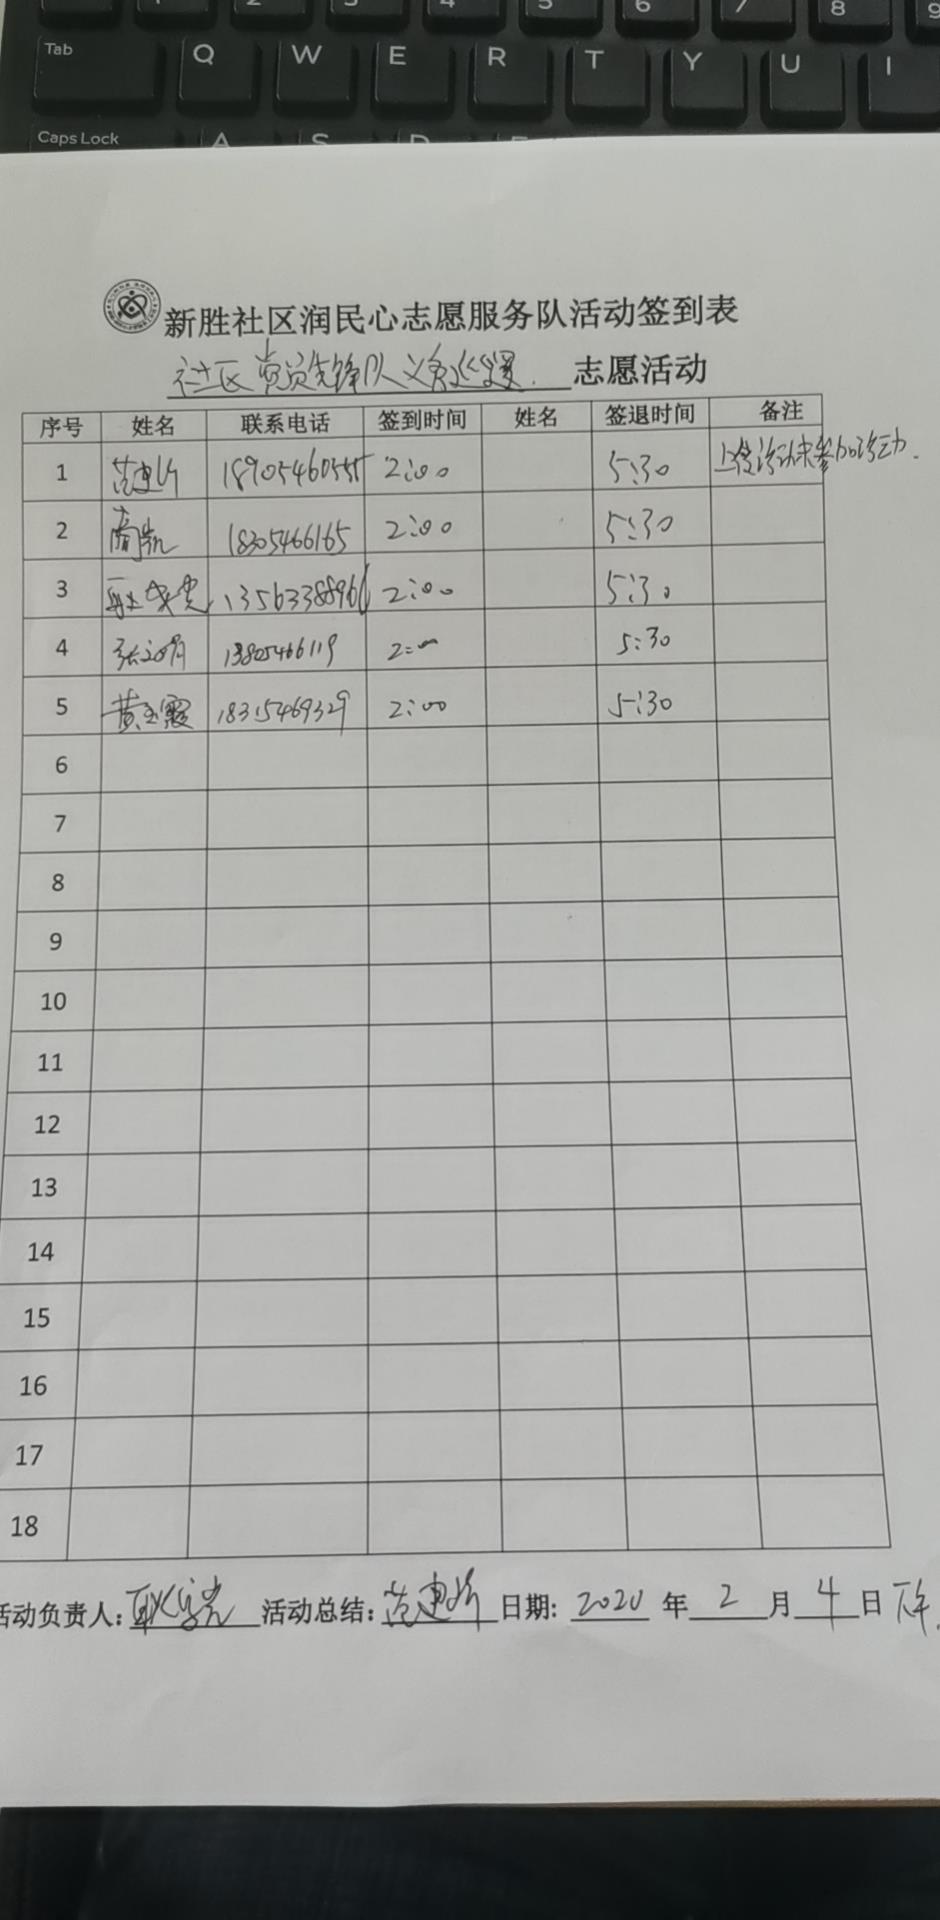 Tab Q W E R T Y U I
Caps Lock A S D
新胜社区润民心志愿服务队活动签到表
社区党员先锋队义务巡逻 志愿活动
序号 姓名 联系电话 签到时间 姓名 签退时间 备注
1 18905460555 2:00 5:30
2 商凯 18305466165 2:00 5:30
3 2:00 5:30
4 张文明 13805466119 2:00 5:30
5 黄玉霞 18315469329 2:00 5:30
6
7
8
9
10
11
12
13
14
15
16
17
18
活动负责人: 活动总结: 日期: 年 2 月 4 日 下午.